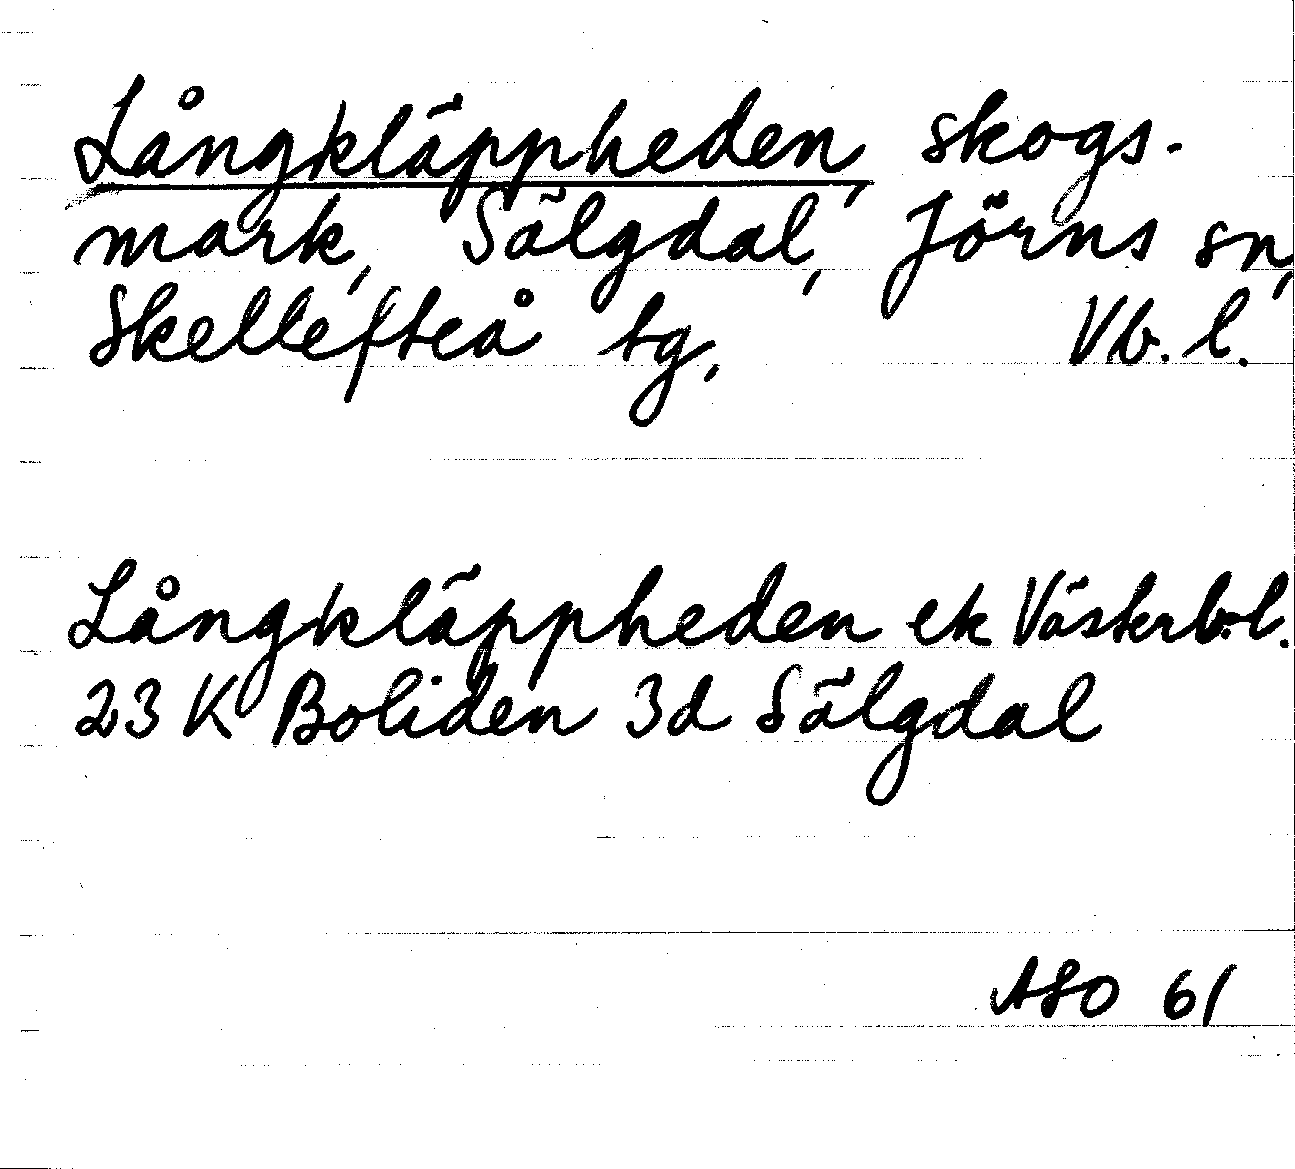 Långkläppheden, skogs-
mark, Sälgdal, Jörns sn,
Skellefteå tg, Vb. l.
Långkläppheden ek Västerb.l.
23 K Boliden 3d Sälgdal
ASO 61